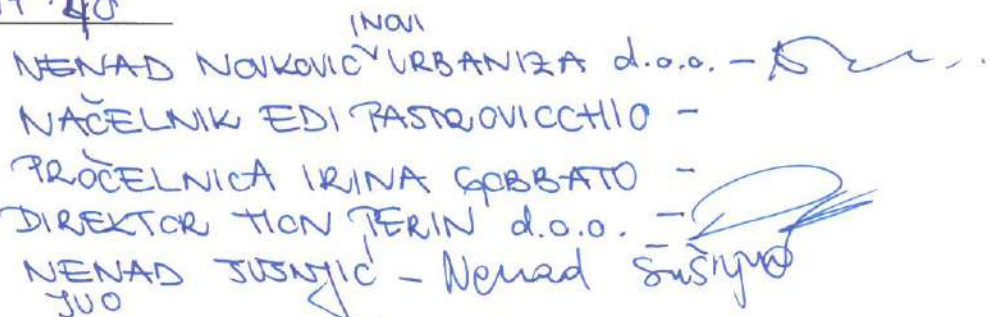 INOVI
NENAD NOVKOVIĆ URBANIZA d.o.o. -
NAČELNIK EDI PASTROVICCHIO -
PROČELNICA IRINA GOBBATO -
DIREKTOR TION PERIN d.o.o. -
NENAD ŠUŠNJIĆ - Nenad Šušnjić
JUO